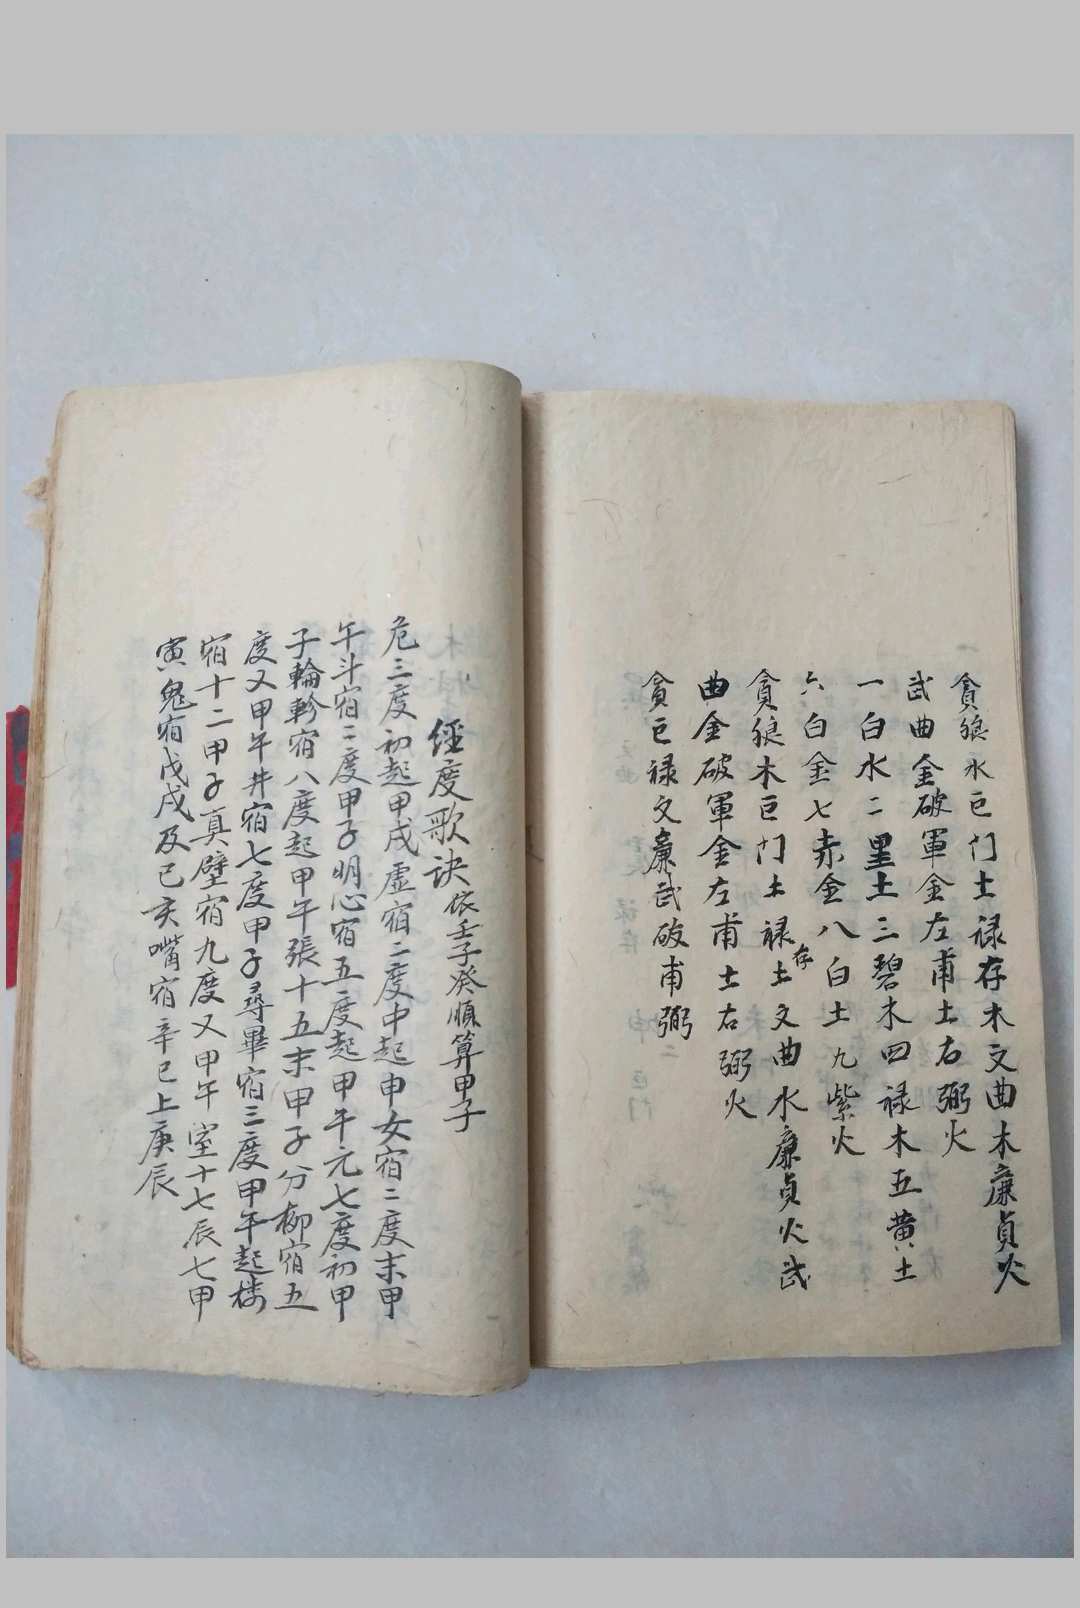 貪狼水巨门土禄存木文曲木廉貞火
武曲金破軍金左甫土右弼火
一白水二里土三碧木四禄木五黄土
六白金七赤金八白土九紫火
貪狼木巨门土禄存土文曲水廉貞火武
曲金破軍金左甫土右弼火
貪巨禄文廉武破甫弼
經度歌訣依壬子癸順算甲子
危三度初起甲戌虚宿二度中起申女宿二度末甲
午斗宿二度甲子明心宿五度起甲午元七度初甲
子輪軫宿八度起甲午張十五末甲子分柳宿五
度又甲午井宿七度甲子尋畢宿三度甲午起楼
宿十二甲子真壁宿九度又甲午室十七辰七甲
寅鬼宿戊戌及己亥嘴宿辛巳上庚辰